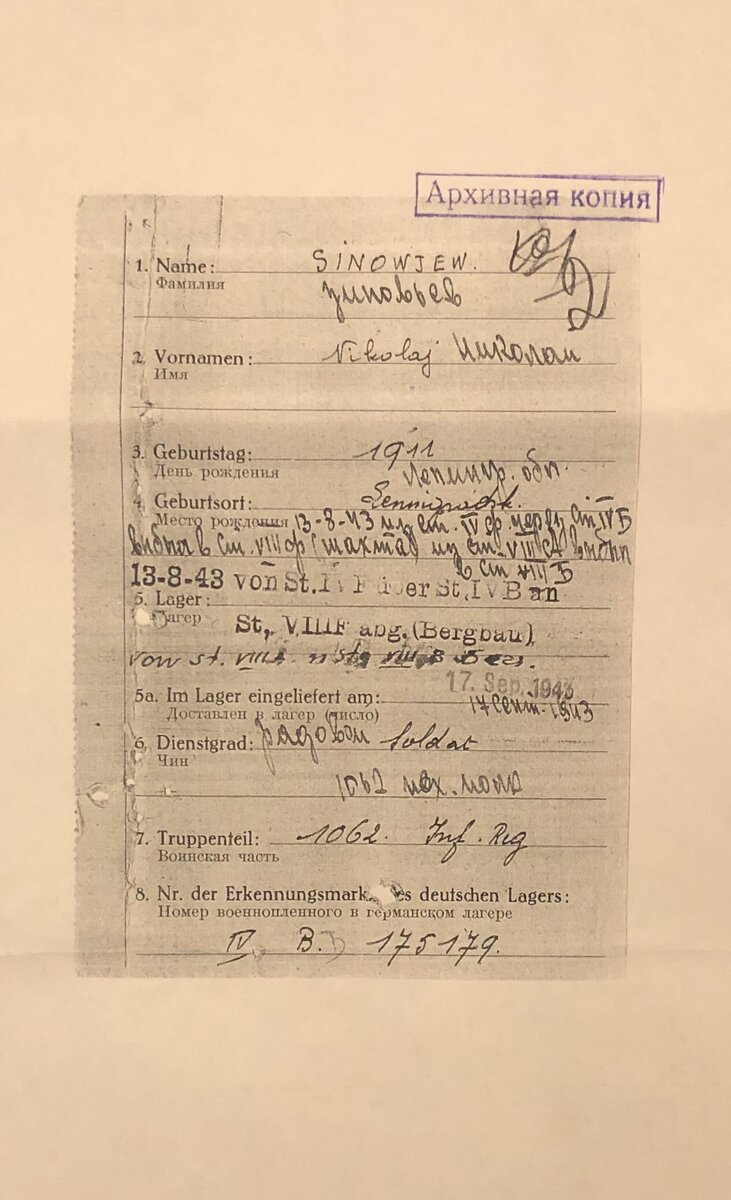 Архивная копия
1. Name: SINOWJEW.
Фамилия Зиновьев
2. Vornamen: Nikolaj Николай
Имя
3. Geburtstag: 1911
День рождения Ленингр. обл.
4. Geburtsort:
Место рождения 13-8-43 из ст. IV ф через ст IV Б
выбыл в ст. VIII ф (шахта) из ст. VIII выбыл
в ст VIII Б
13-8-43 von St. IV F über St. IV B an
5. Lager:
Лагерь St. VIII F abg. (Bergbau)
von St. VIII VIII B
17. Sep. 1943
5a. Im Lager eingeliefert am:
Доставлен в лагерь (число) 17 сент. 1943
6. Dienstgrad: рядовой Soldat
Чин
1062 пех. полк
7. Truppenteil: 1062. Inf. Reg
Воинская часть
8. Nr. der Erkennungsmark des deutschen Lagers:
Номер военнопленного в германском лагере
IV B. 175179.